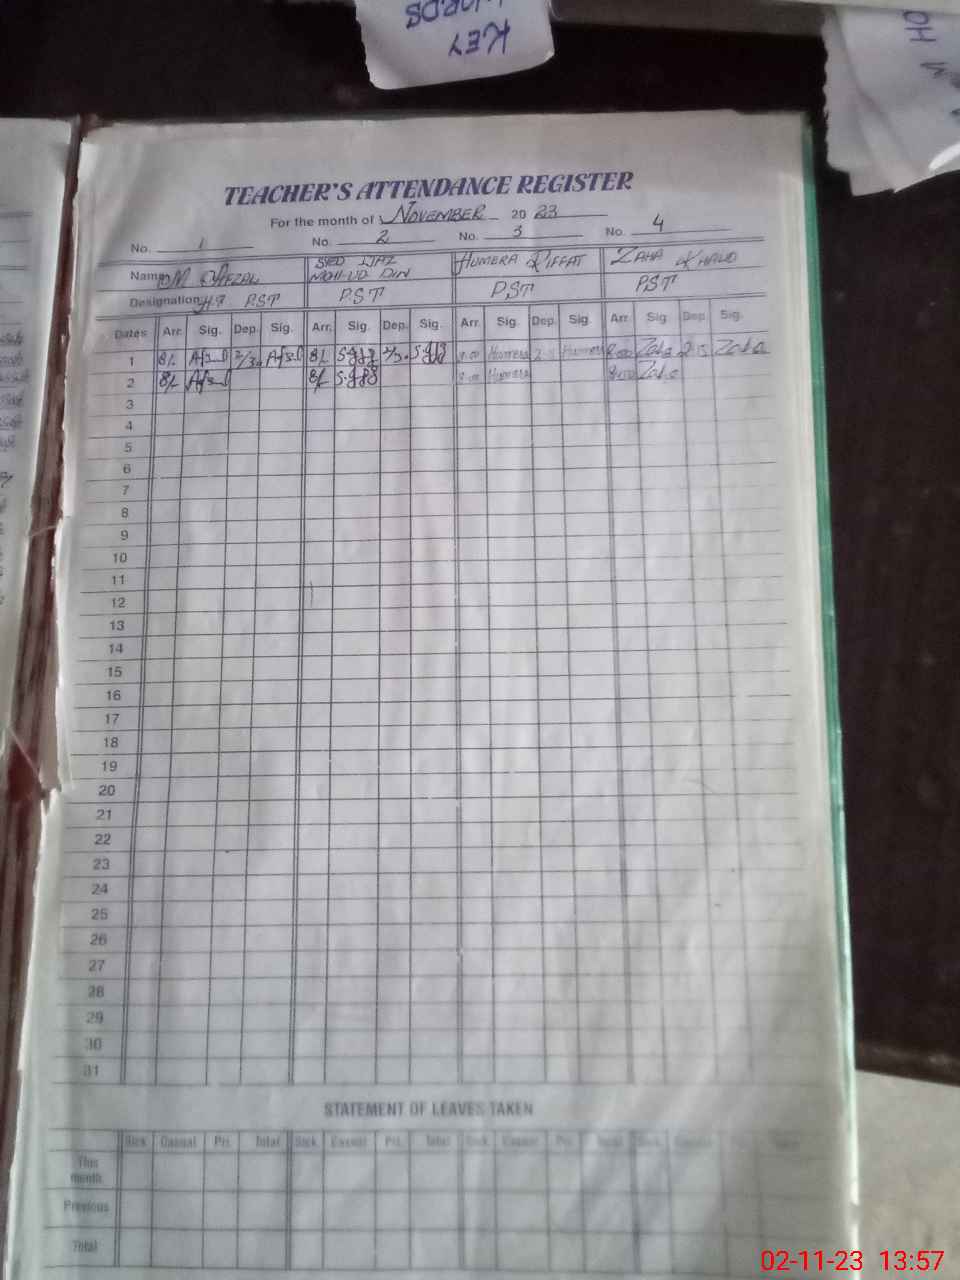 KEY
WORDS
TEACHER'S ATTENDANCE REGISTER
For the month of NOVEMBER 2023
No. 1 No. 2 No. 3 No. 4
Name M AFZAL SYED IJAZ MOHI-UD DIN HUMERA RIFFAT ZAHA KHALID
Designation PST PST PST PST
Dates Arr. Sig. Dep. Sig. Arr. Sig. Dep. Sig. Arr. Sig. Dep. Sig. Arr. Sig. Dep. Sig.
1 8/- Afzal 2/30 Afzal 8/- 2/30 8:00 Humera Humera 8:00 Zaha 2:15 Zaha
2 8/- Afzal 8/- 8:00 Humera 8:00 Zaha
3
4
5
6
7
8
9
10
11
12
13
14
15
16
17
18
19
20
21
22
23
24
25
26
27
28
29
30
31
STATEMENT OF LEAVES TAKEN
Sick Casual Pri. Total Sick Casual Pri. Total Sick Casual Pri. Total Sick Casual
This month
Previous
Total
02-11-23 13:57